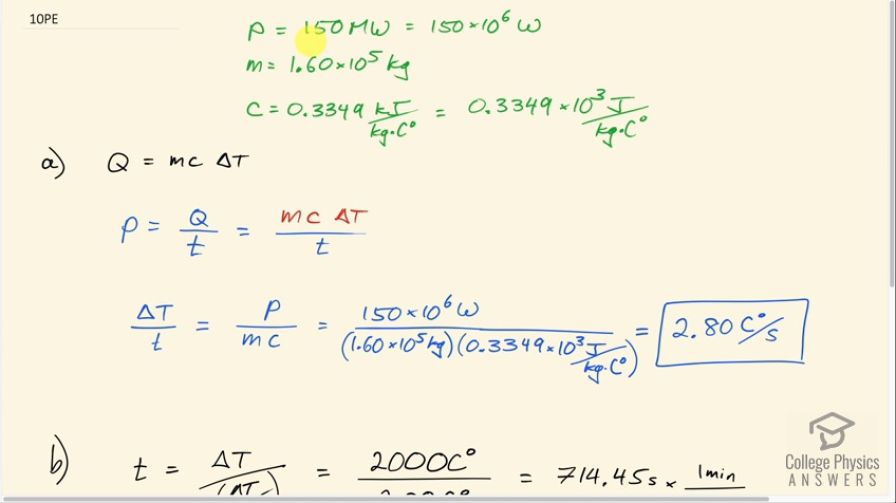 10PE
P = 150 MW = 150×10⁶ W
m = 1.60×10⁵ kg
C = 0.3349 kJ/kg·C° = 0.3349×10³ J/kg·C°
a) Q = mc ΔT
P = Q/t = mc ΔT/t
ΔT/t = P/mc = 150×10⁶ W/(1.60×10⁵ kg)(0.3349×10³ J/kg·C°) = 2.80 C°/s
b) t = ΔT/(ΔT = 2000C° = 714.45 s × 1min
College Physics
ANSWERS